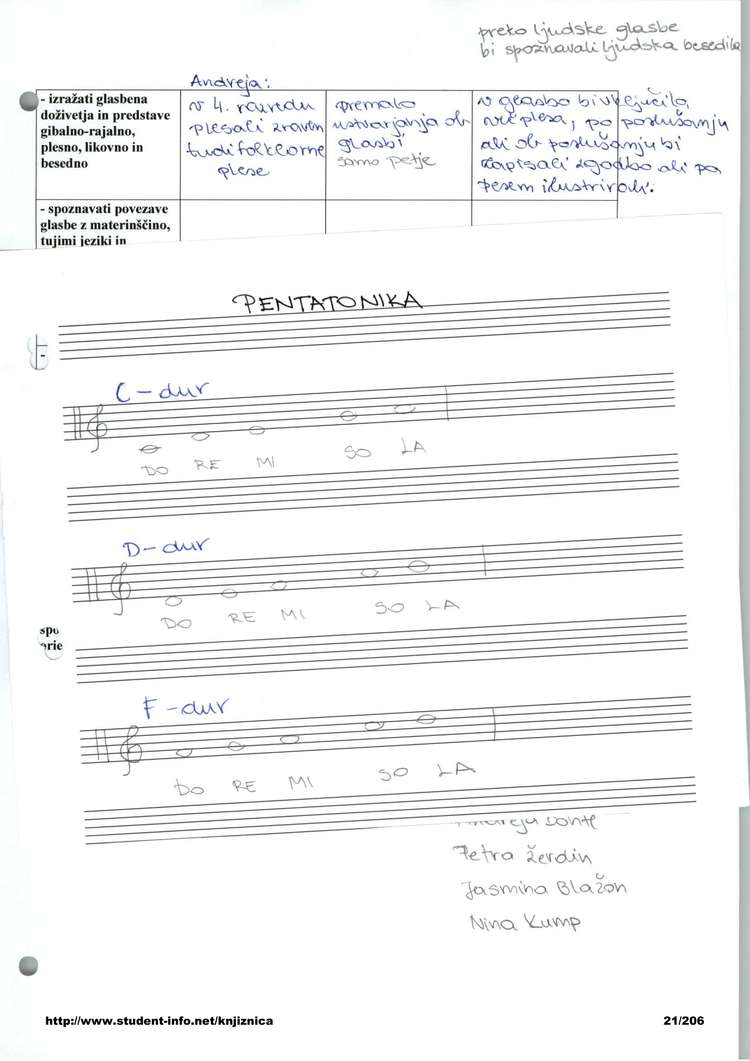 preko ljudske glasbe
bi spoznavali ljudska besedila
Andreja:
- izražati glasbena
doživetja in predstave
gibalno-rajalno,
plesno, likovno in
besedno
v 4. razredu
plesali zraven
tudi folklorne
plese
premalo
ustvarjanja ob
glasbi
samo petje
v glasbo bi vključila
več plesa, po poslušanju
ali ob poslušanju bi
zapisali zgodbo ali pa
pesem ilustrirali.
- spoznavati povezave
glasbe z materinščino,
tujimi jeziki in
PENTATONIKA
C-dur
DO RE MI SO LA
D-dur
DO RE MI SO LA
spo
F-dur
DO RE MI SO LA
Petra Žerdin
Jasmina Blažon
Nina Kump
http://www.student-info.net/knjiznica
21/206